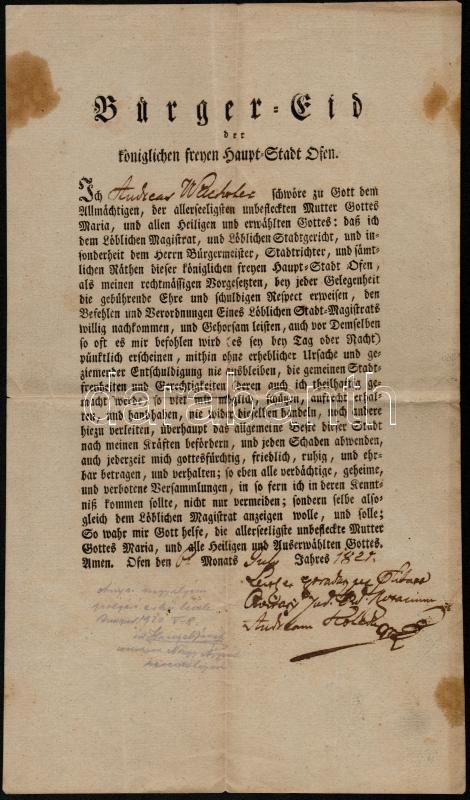 Bürger-Eid
der
königlichen freyen Haupt-Stadt Ofen.
Ich Andreas schwöre zu Gott dem
Allmächtigen, der allerseeligsten unbefleckten Mutter Gottes
Maria, und allen Heiligen und erwählten Gottes: daß ich
dem Löblichen Magistrat, und Löblichen Stadtgericht, und in-
sonderheit dem Herrn Bürgermeister, Stadtrichter, und sämt-
lichen Räthen dieser königlichen freyen Haupt-Stadt Ofen,
als meinen rechtmässigen Vorgesetzten, bey jeder Gelegenheit
die gebührende Ehre und schuldigen Respect erweisen, den
Befehlen und Verordnungen Eines Löblichen Stadt-Magistrats
willig nachkommen, und Gehorsam leisten, auch vor Demselben
so oft es mir befohlen wird (es sey bey Tag oder Nacht)
pünktlich erscheinen, mithin ohne erheblicher Ursache und ge-
ziemender Entschuldigung nie ausbleiben, die gemeinen Stadt-
freyheiten und Gerechtigkeiten (deren auch ich theilhaftig ge-
macht werde) so viel mir möglich, schützen, aufrecht erhal-
ten, und handhaben, nie wider dieselben handeln, noch andere
hiezu verleiten, überhaupt das allgemeine Beste dieser Stadt
nach meinen Kräften befördern, und jeden Schaden abwenden,
auch jederzeit mich gottesfürchtig, friedlich, ruhig, und ehr-
bar betragen, und verhalten; so eben alle verdächtige, geheime,
und verbotene Versammlungen, in so fern ich in deren Kennt-
niß kommen sollte, nicht nur vermeiden; sondern selbe also-
gleich dem Löblichen Magistrat anzeigen wolle, und solle;
So wahr mir Gott helfe, die allerseeligste unbefleckte Mutter
Gottes Maria, und alle Heiligen und Auserwählten Gottes.
Amen. Ofen den 6 Monats July Jahres 1821.
darabanth